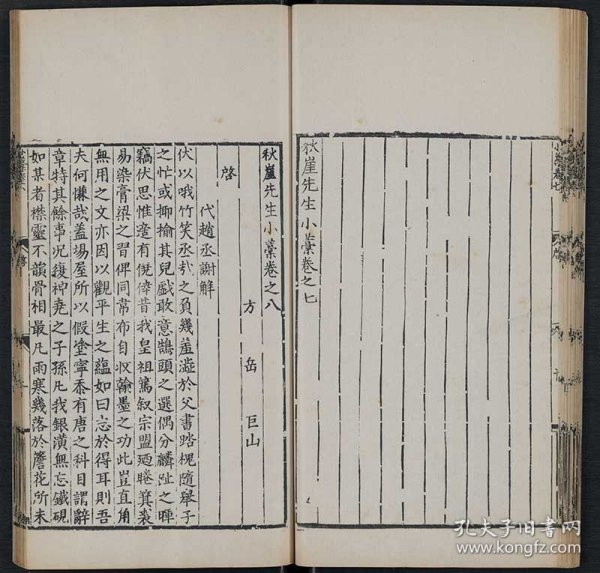 秋崖先生小藁卷之七
秋崖先生小藁卷之八
方岳巨山
啓
代趙丞謝解
伏以哦竹笑丞哉之負幾羞澁於父書踏槐隨舉子
之忙或揶揄其兒戲敢意鵠頭之選偶分麟趾之暉
竊伏思惟遭有僥倖昔我皇祖篤叙宗盟廼睠箕裘
易染膏粱之習俾同韋布自収翰墨之功此豈直角
無用之文亦因以觀平生之藴如曰忘於得耳則吾
夫何慊哉蓋場屋所以假塗寧忝有唐之科目謂辭
章特其餘事况復神堯之子孫凡我銀潢無忘鐵硯
如某者襟靈不韻骨相最凡雨寒幾落於簷花所未
孔夫子旧书网
www.kongfz.com